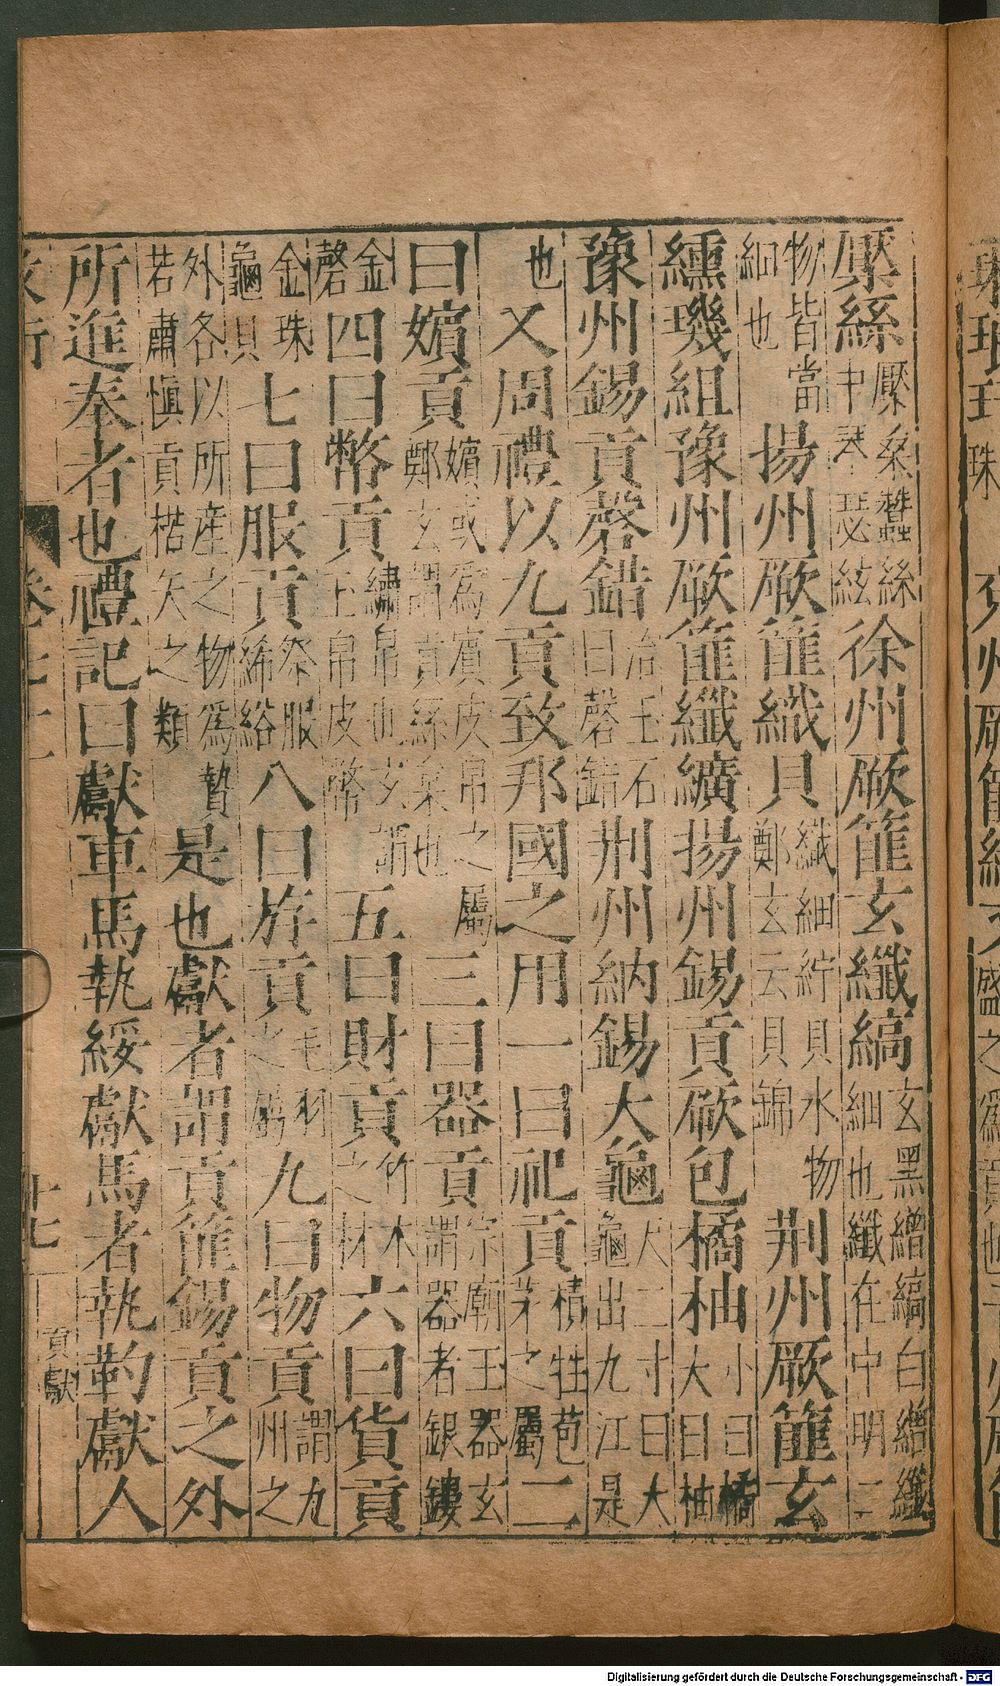 厭絲檿桑蠶絲中琴瑟絃徐州厥篚玄纖縞玄黑繒縞白繒纖細也纖在中明二
物皆當細也揚州厥篚織貝織細紵貝水物鄭玄云貝錦荆州厥篚玄
纁璣組豫州厥篚纖纊揚州錫貢厥包橘柚小曰橘大曰柚
豫州錫貢磬錯治玉石曰磬錯荆州納錫大龜尺二寸曰大龜出九江是
也又周禮以九貢致邦國之用一曰祀貢犧牲苞茅之屬二
曰嬪貢嬪或爲賓皮帛之屬鄭玄謂貢絲枲也三曰器貢宗廟王器玄謂器者銀鏤
金磬四曰幣貢繡帛也玄謂玉帛皮幣五曰財貢竹木之材六曰貨貢
金珠龜貝七曰服貢祭服絺綌八曰斿貢毛羽之九曰物貢謂九州之
外各以所産之物爲贄若肅慎貢楛矢之類是也獻者謂貢篚錫貢之外
所進奉者也禮記曰獻車馬執綏獻馬者執靮獻人
十七 貢獻
Digitalisierung gefördert durch die Deutsche Forschungsgemeinschaft - DFG